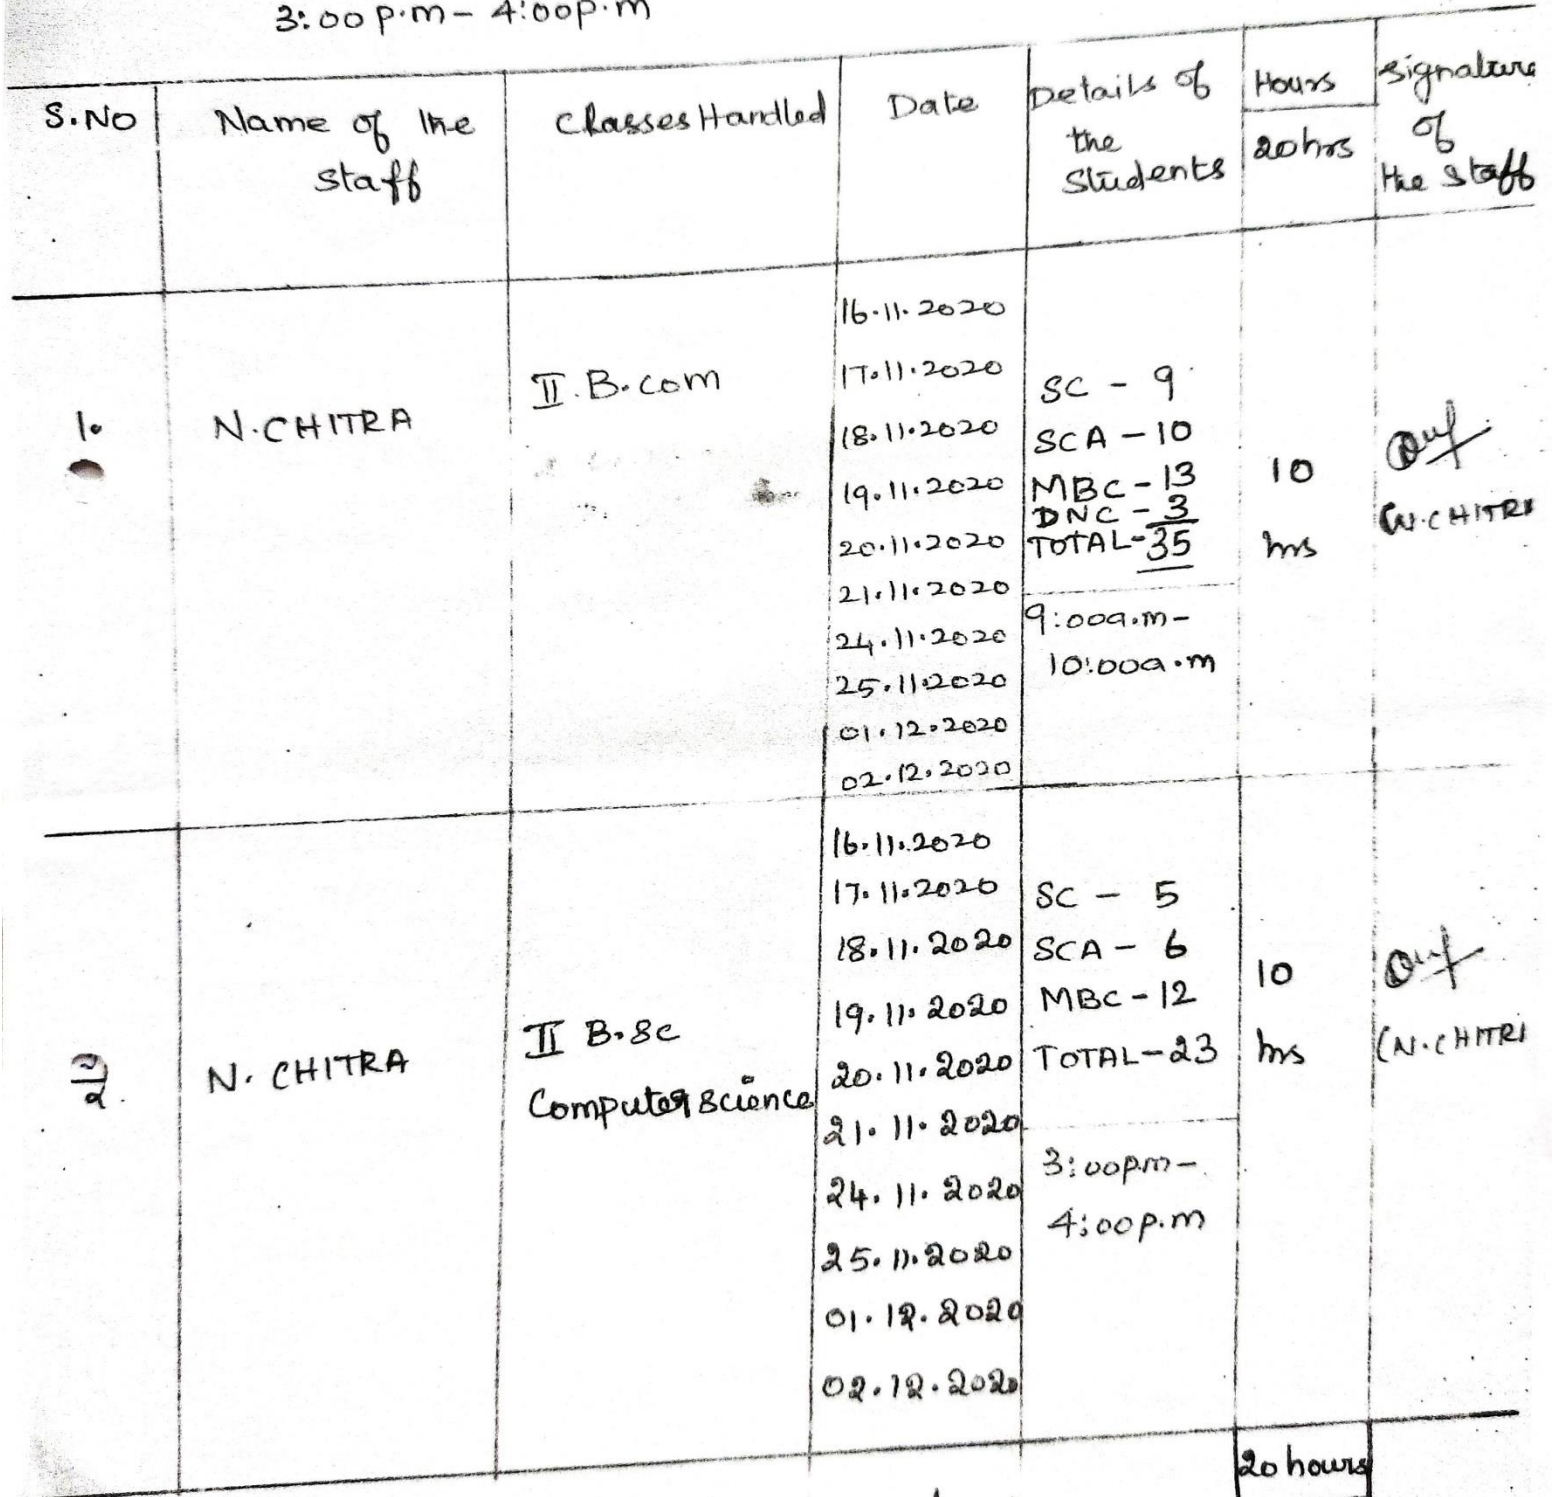 3:00 p.m - 4:00p.m
S.NO
Name of the
staff
Classes Handled
Date
Details of
the
Students
Hours
20hrs
Signature
of
the Staff
1.
N.CHITRA
II. B.com
16.11.2020
17.11.2020
18.11.2020
19.11.2020
20.11.2020
21.11.2020
24.11.2020
25.11.2020
01.12.2020
02.12.2020
SC - 9
SCA - 10
MBC - 13
DNC - 3
TOTAL - 35
9:00a.m-
10:00a.m
10
hrs
(N.CHITR
2.
N. CHITRA
II B.Sc
Computer science
16.11.2020
17.11.2020
18.11.2020
19.11.2020
20.11.2020
21.11.2020
24.11.2020
25.11.2020
01.12.2020
02.12.2020
SC - 5
SCA - 6
MBC - 12
TOTAL - 23
3:00pm-
4:00p.m
10
hrs
(N.CHITR
20 hours